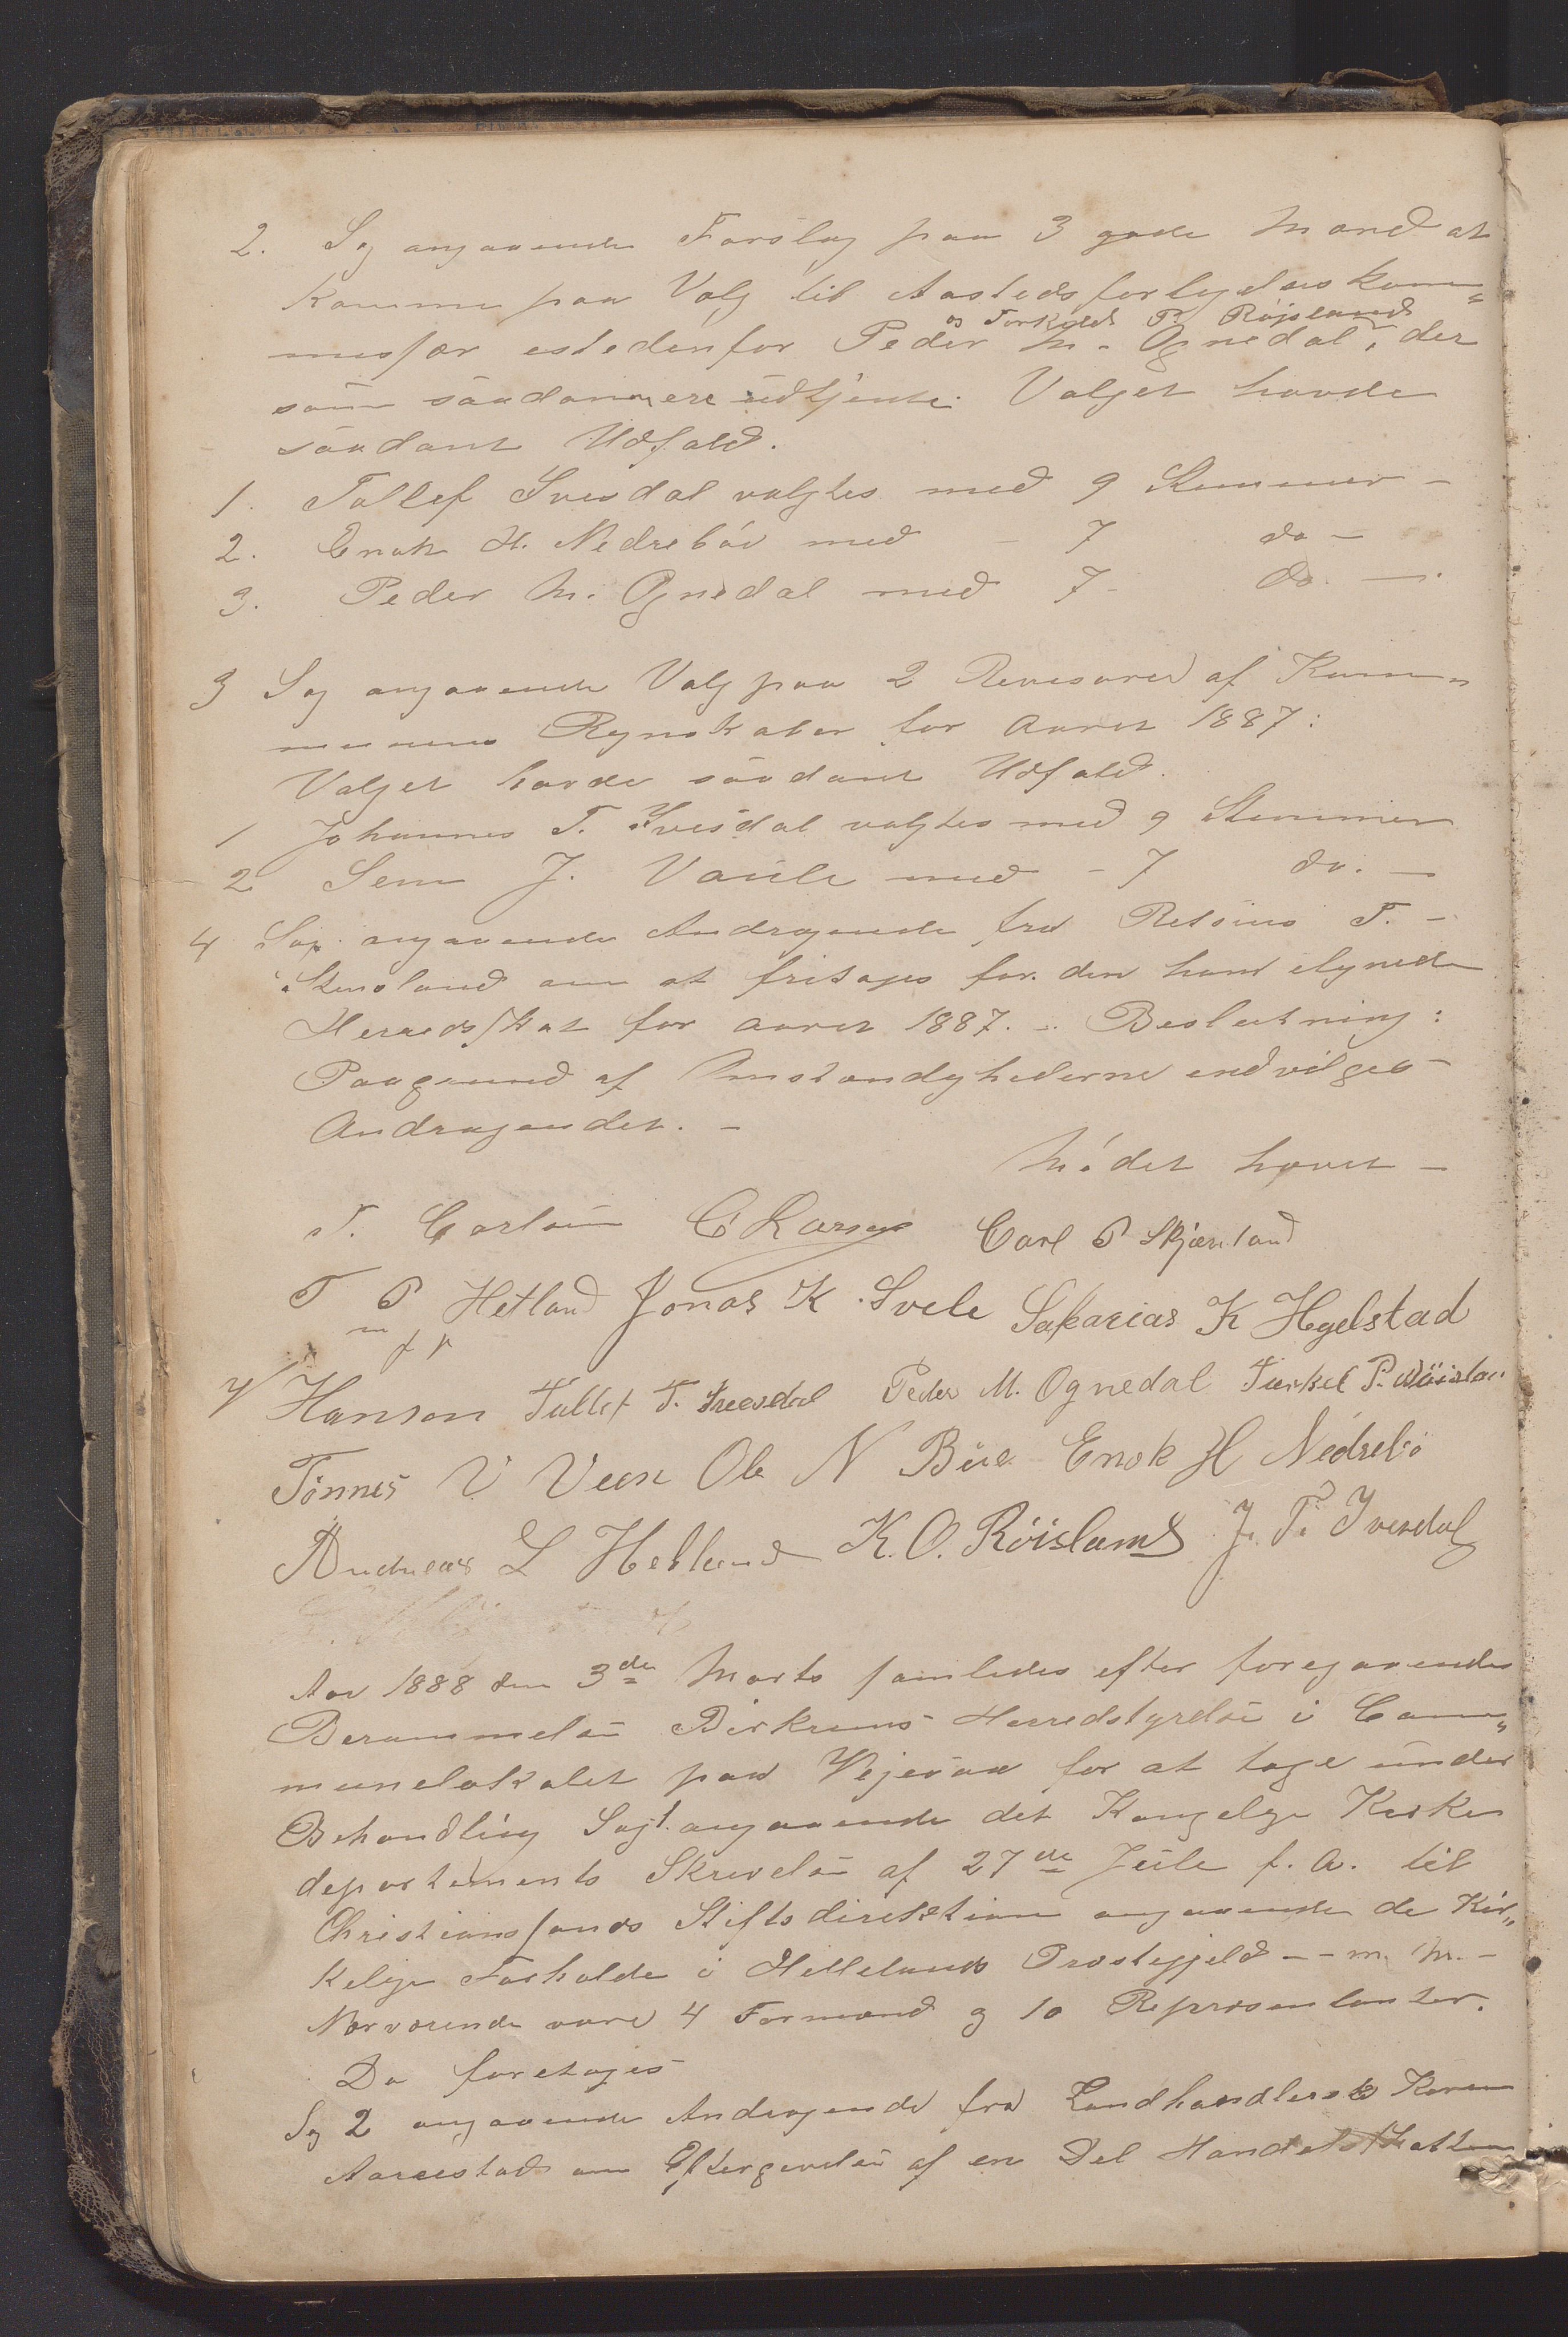 2. Sag angaaende Forslag paa 3 gode Mænd at
komme paa Valg til Aastedsforligelseskom„
og Torkild P. Röjsland
missær istedenfor Peder M. Ognedal, der
som saadanne ere udtjente. Valget havde
saadant Udfald.
1. Tollef Ivesdal valgtes med 9 Stemmer –
2. Enok H. Nedrebö med – 7 do –
3. Peder M. Ognedal med 7 – do. –
3 Sag angaaende Valg paa 2 Revisorer af Kom„
munens Regnskaber for Aaret 1887:
Valget havde saadant Udfald.
1 Johannes T. Ivesdal valgtes med 9 Stemmer
2 Sem J. Vaule med – 7 do. –
4 Sag angaaende Andragende fra Retsius T. –
Stensland om at fritages for den ham ilignede
Herredsskat for Aaret 1887. – Beslutning:
Paagrund af Omstændighederne indvilges
Andragendet. –
Mödet hævet –
T. Carlsen C Larsen Carl P Skjæveland
T P Hetland Jonas K. Svele Sakarias K Hegelstad
m f p
Hanson Tollef T. Ivesdal Peder M. Ognedal Torkel P. Röisland
Tönnes V Veen Ole N Bue Enok H Nedrebö
Andreas L Helland K. O. Röisland J. T. Ivesdal
Aar 1888 den 3de Marts samledes efter foregaaende
Berammelse Birkrems Herredstyrelse i Com„
munelokalet paa Vejeraa for at tage under
Behandling Sag 1. angaaende det Kongelige Kirke
departements Skrivelse af 27de Juli f. A. til
Christianssands Stiftsdirektion angaaende de Kir„
kelige Forholde i Hellelands Prestegjeld – – m. M. –
Nærværende vare 4 Formænd og 10 Repræsentanter.
Da foretages
Sag 2 angaaende Andragende fra Landhandlerske Karen
Aarrestad om Eftergivelse af en Del Handelsskatten